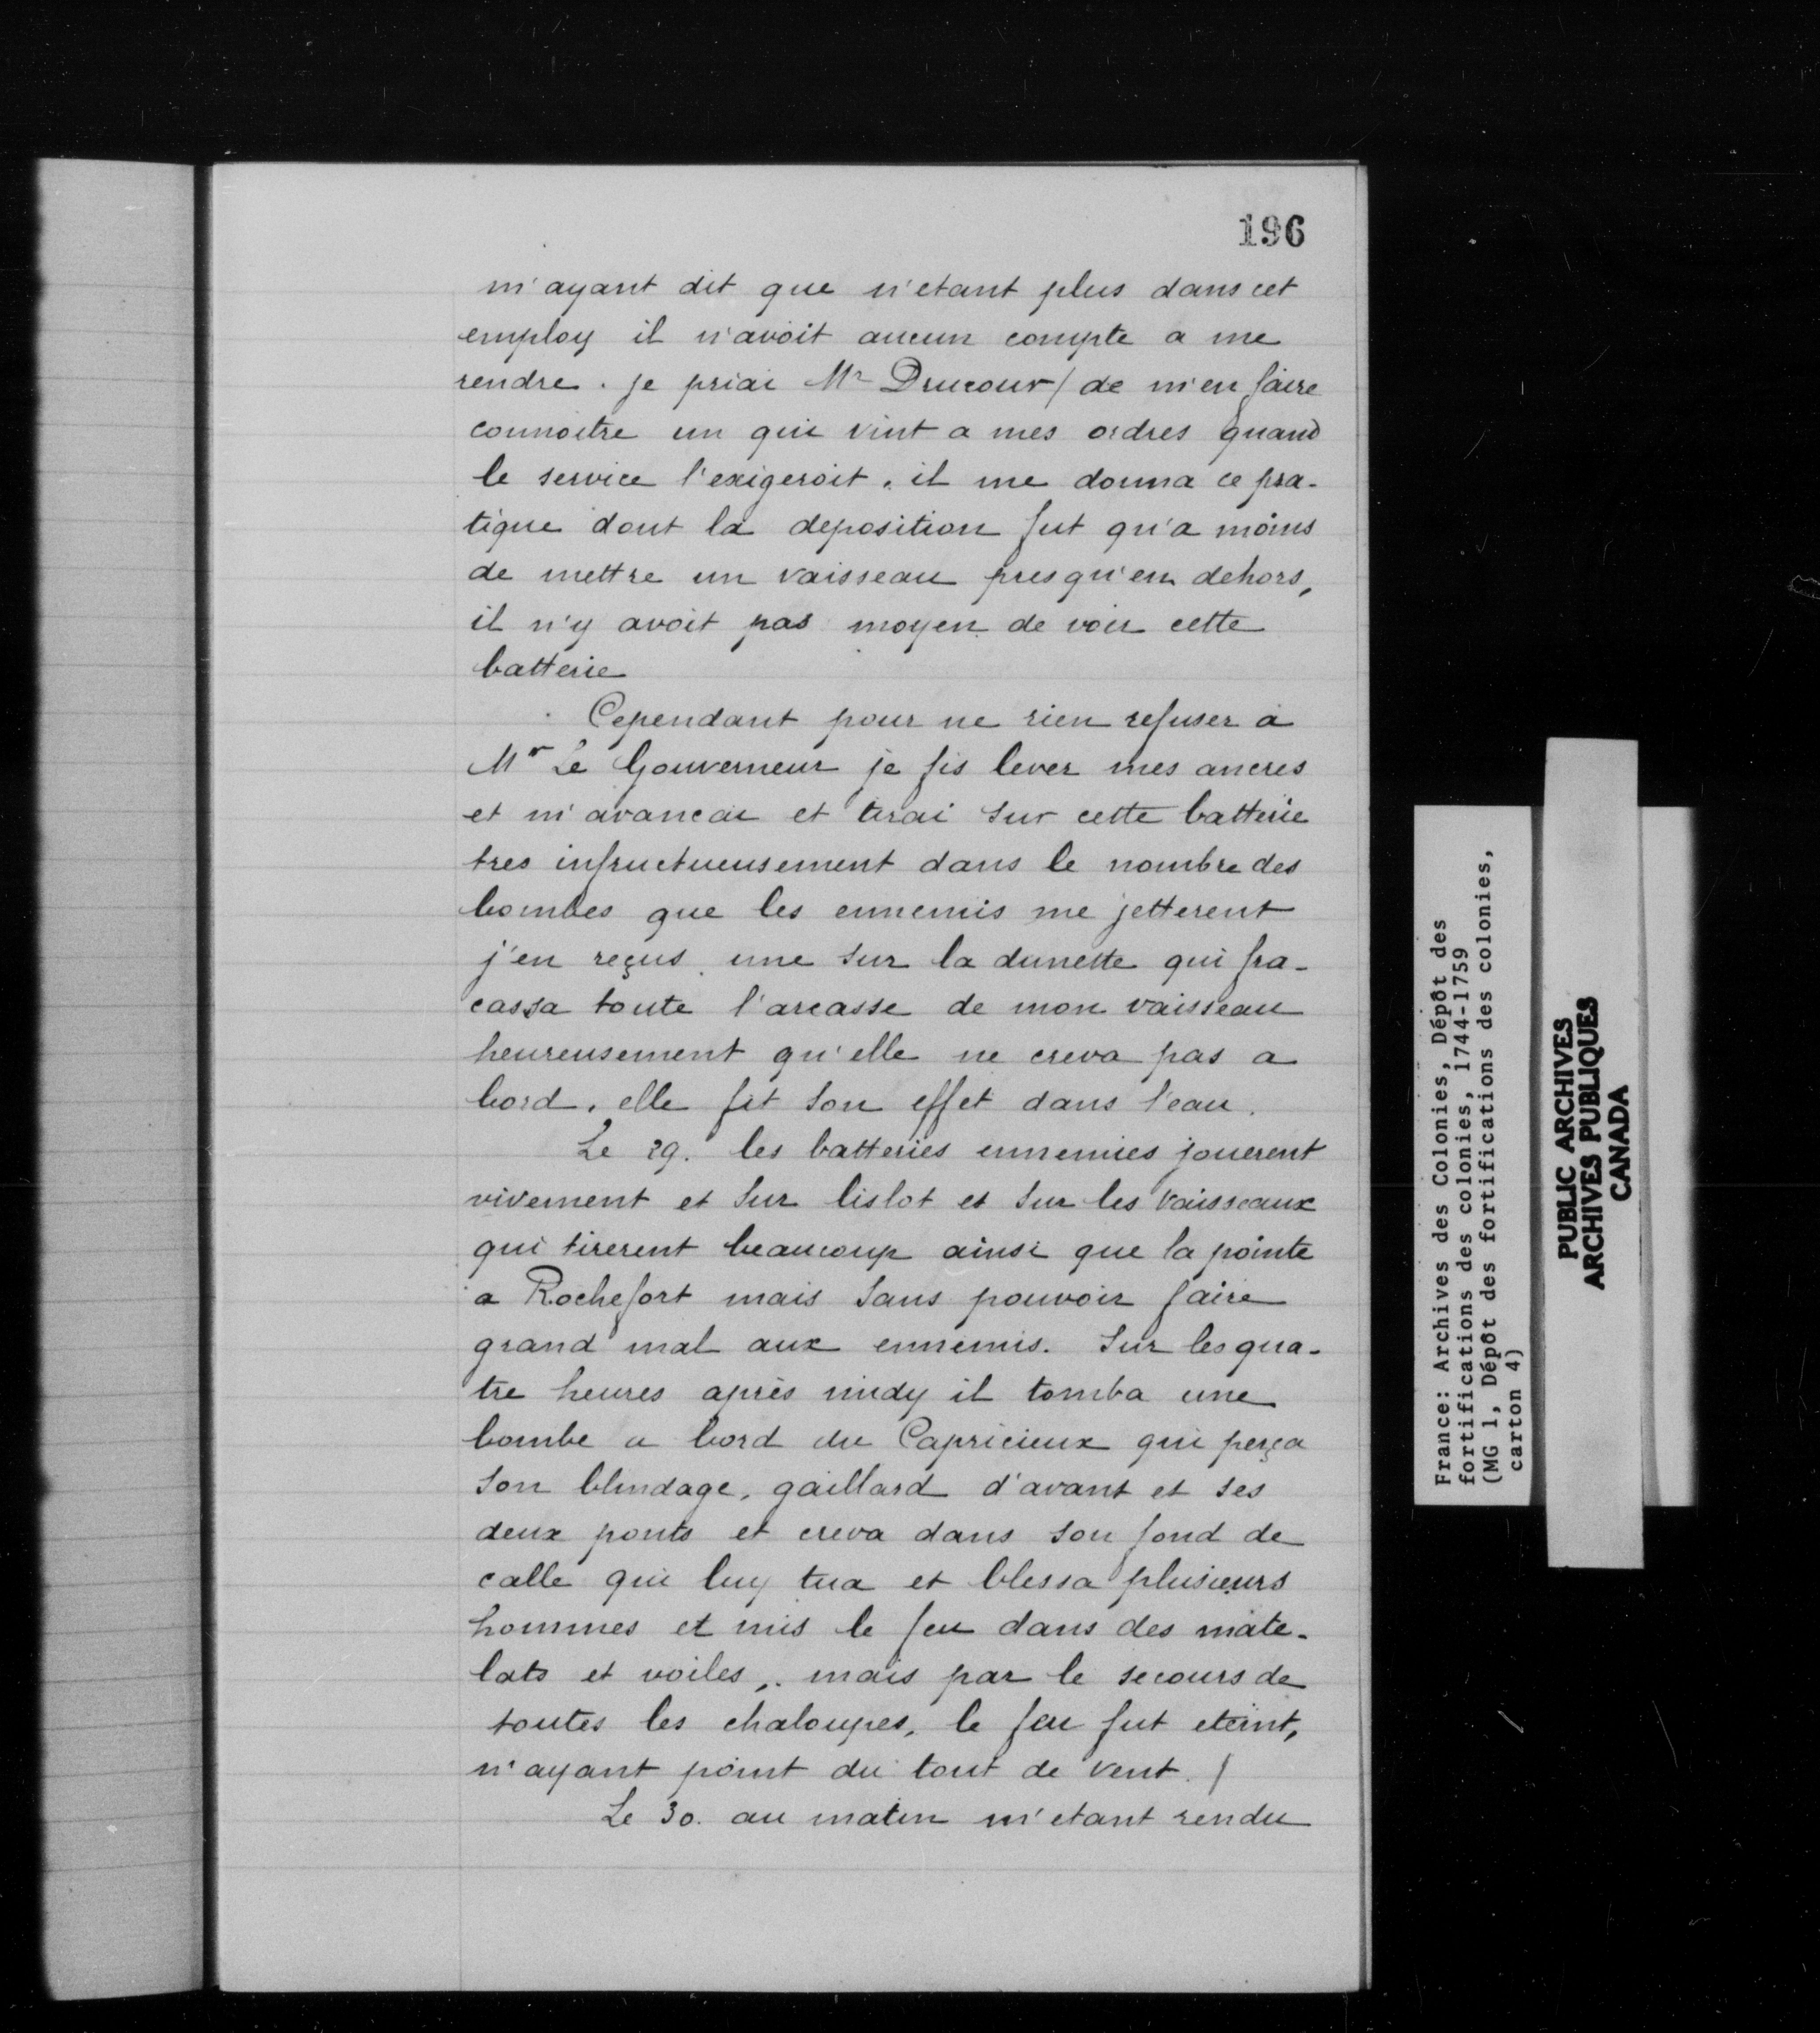 196
m'ayant dit que n'etant plus dans cet
employ il n'avoit aucun compte a me
rendre. je priai Mr Drucour/ de m'en faire
connoitre un qui vint a mes ordres quand
le service l'exigeroit. il me donna ce pra-
tique dont la deposition fut qu'a moins
de mettre un vaisseau presqu'en dehors,
il n'y avoit pas moyen de voir cette
batterie
Cependant pour ne rien refuser a
Mr Le Gouverneur je fis lever mes ancres
et m'avancai et tirai sur cette batterie
tres infructueusement dans le nombre des
bombes que les ennemis me jetterent
j'en reçus une sur la dunette qui fra-
cassa toute l'arcasse de mon vaisseau
heureusement qu'elle ne creva pas a
bord. elle fit son effet dans l'eau.
Le 29. les batteries ennemies jouerent
vivement et sur lislot et sur les vaisseaux
qui tirerent beaucoup ainsi que la pointe
a Rochefort mais sans pouvoir faire
grand mal aux ennemis. Sur les qua-
tre heures après midy il tomba une
bombe a bord du Capricieux qui perça
son blindage, gaillard d'avant et ses
deux ponts et creva dans son fond de
calle qui luy tua et blessa plusieurs
hommes et mis le feu dans des mate-
lats et voiles,. mais par le secours de
toutes les chaloupes, le feu fut eteint,
n'ayant point du tout de vent. /
Le 30. au matin m'etant rendu
France: Archives des Colonies, Dépôt des
fortifications des colonies, 1744-1759
(MG 1, Dépôt des fortifications des colonies,
carton 4)
PUBLIC ARCHIVES
ARCHIVES PUBLIQUES
CANADA